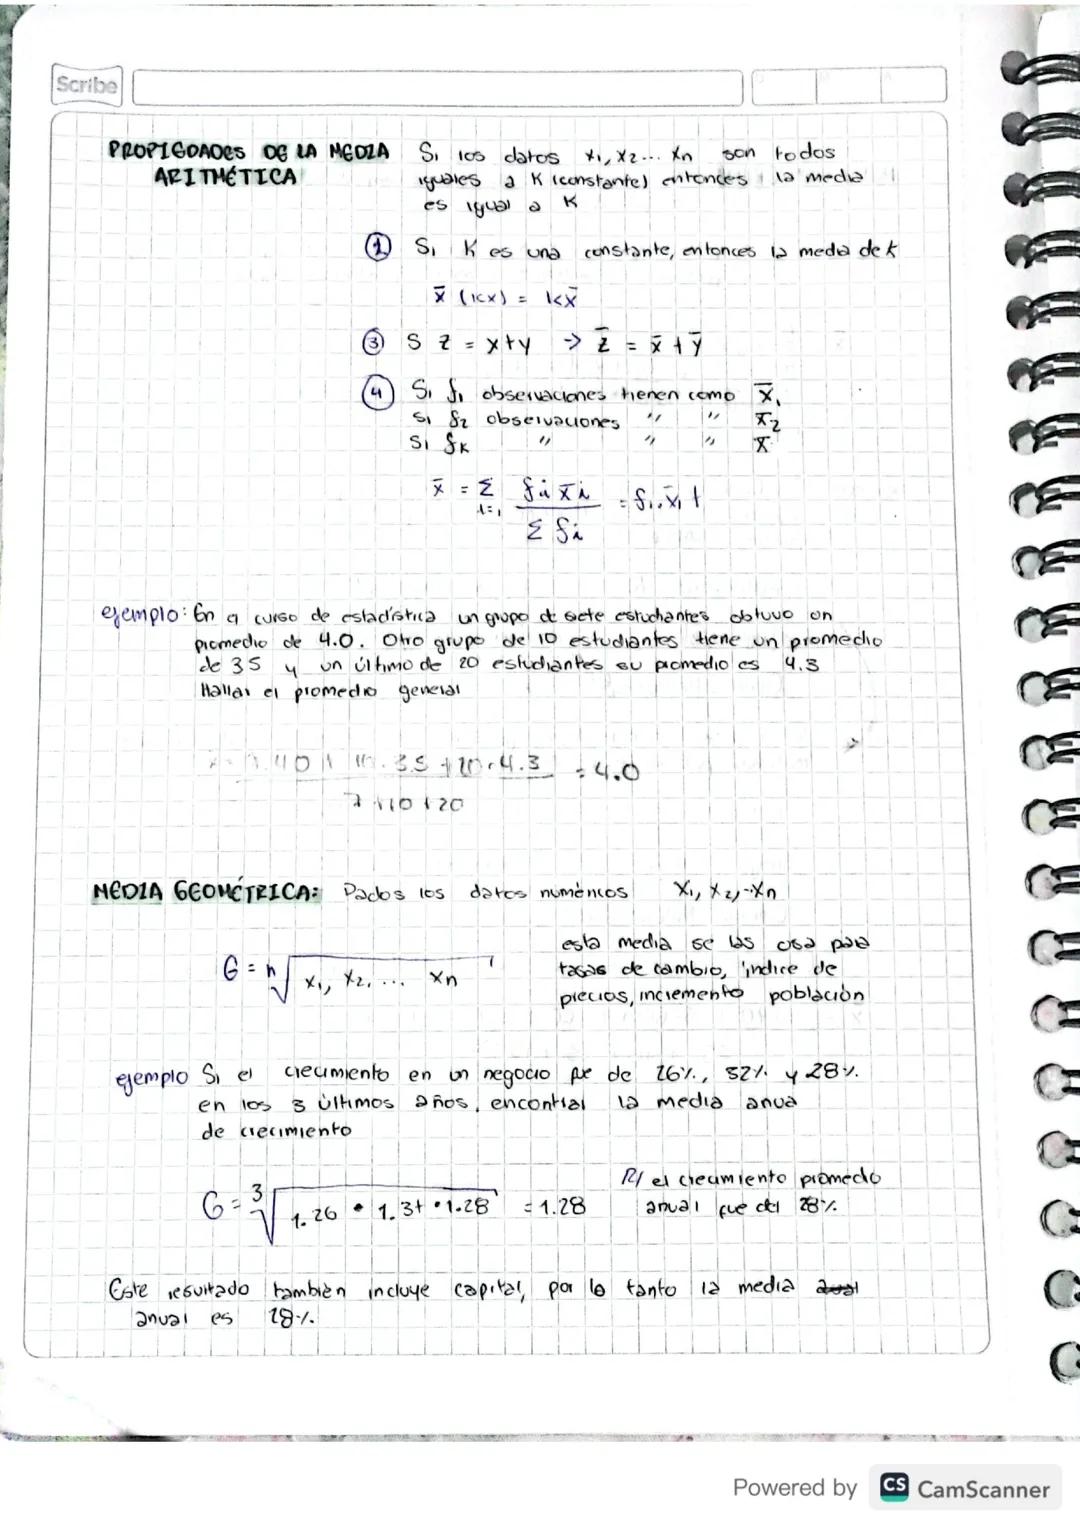 Scribe
PROPIEDADES DE LA MEDIA ARITMÉTICA
Si los datos x₁, x₂... xn son todos
iguales a K (constante) entonces la media
es igual a K
① Si K es una constante, entonces la media de k
x̄ (kx) = kx̄
③ S Z = x+y → z̄ = x̄ + ȳ
④ Si f₁ observaciones tienen como x̄₁
si f₂ observaciones " " x̄₂
si fK " " " x̄
x̄ = Σ i=1 fi x̄i / Σ fi = f₁.x̄₁ +
ejemplo: En a curso de estadística un grupo de siete estudiantes obtuvo un
promedio de 4.0. Otro grupo de 10 estudiantes tiene un promedio
de 35 y un último de 20 estudiantes su promedio es 4.3
Hallar el promedio general
3.5 + 20.4.3 = 4.0
7 + 10 + 20
MEDIA GEOMÉTRICA: Dados los datos numéricos x₁, x₂,..xn
G = n√ x₁, x₂, ... xn
esta media se las usa para
tasas de cambio, índice de
precios, incremento población
ejemplo Si el crecimiento en un negocio fue de 26%, 32% y 28%
en los 3 últimos años, encontrar la media anua
de crecimiento
G = 3√ 1.26 • 1.3+ • 1.28 = 1.28
R/ el crecimiento promedio
anual fue del 28%
Este resultado también incluye capital, por lo tanto la media
anual es 28%.
Powered by CS CamScanner